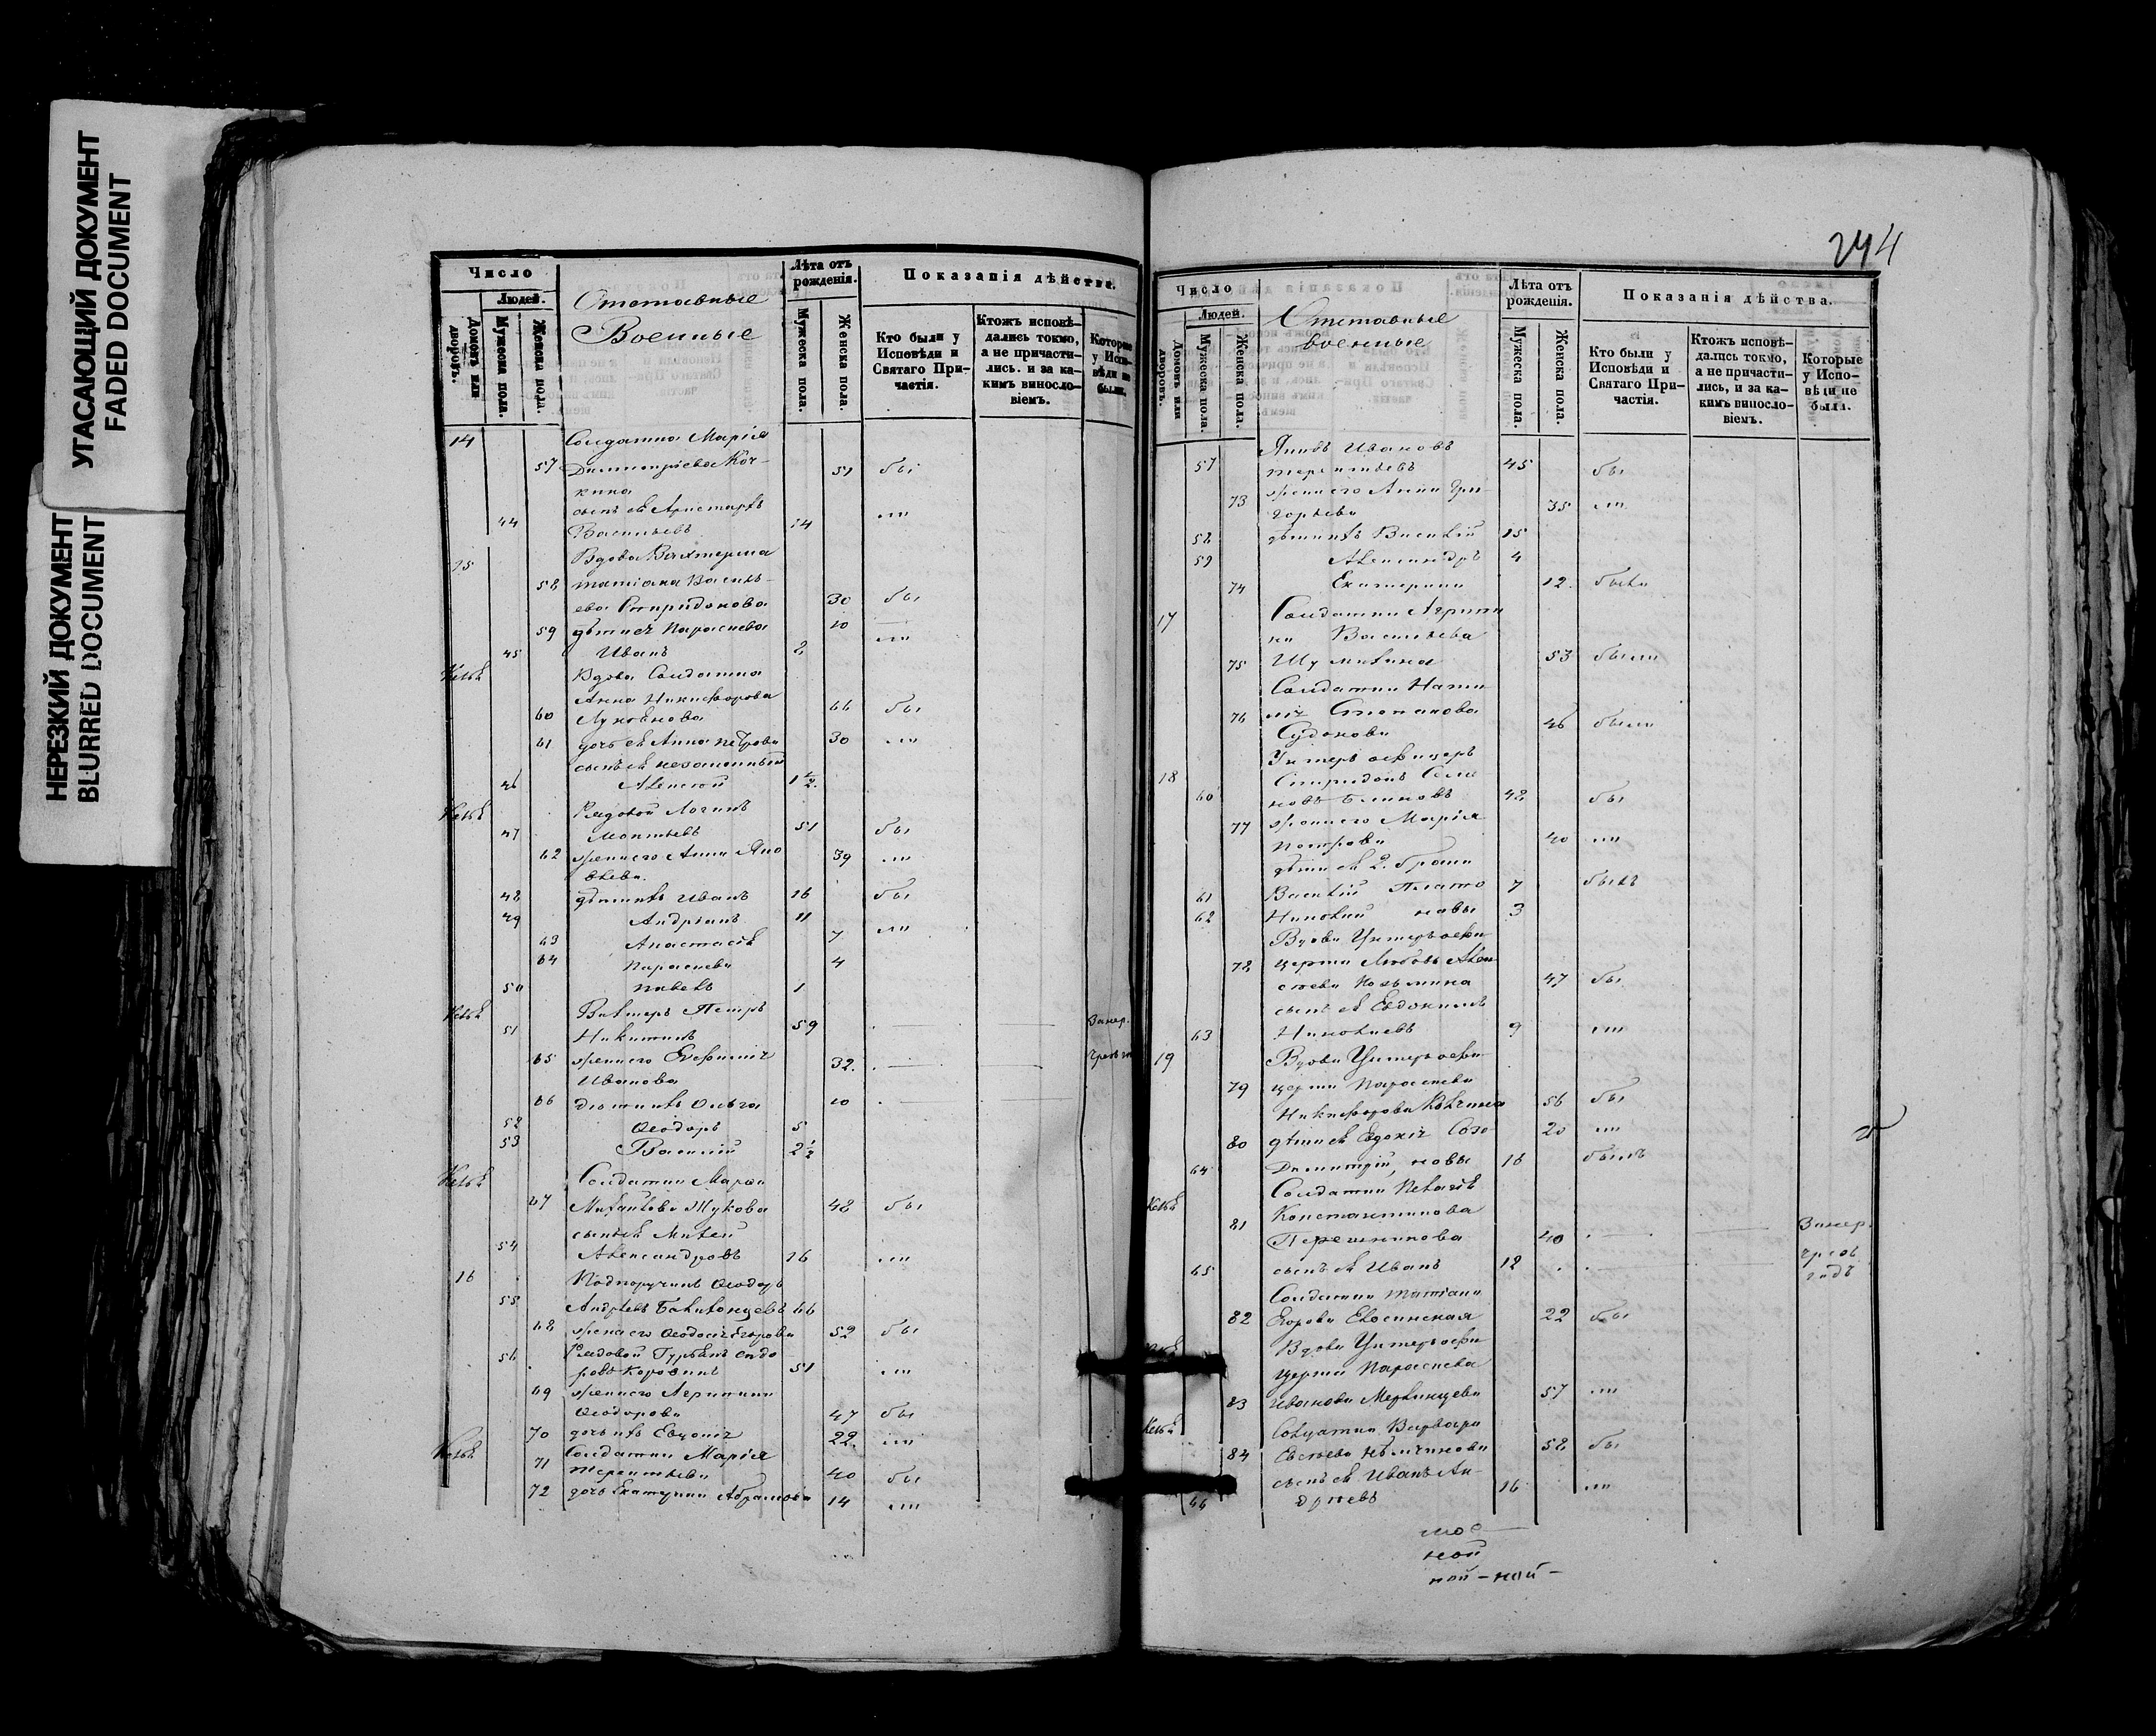 УГАСАЮЩИЙ ДОКУМЕНТ
FADED DOCUMENT
НЕРЕЗКИЙ ДОКУМЕНТ
BLURRED DOCUMENT
Число
Людей.
Домовъ или дворовъ.
Мужеска пола.
Женска пола.
Отставные
Военные
Лѣта отъ рожденія.
Мужеска пола.
Женска пола.
Показанія дѣйства.
Кто были у Исповѣди и Святаго Причастія.
Ктожъ исповѣдались токмо, а не причастились. и за какимъ винословіемъ.
Которые у Исповѣди не были.
14 Солдатка Марія
57 Димитріева Коч- 51 бы
кина
сынъ ея Аристархъ
44 Васильевъ 24 „„
15 Вдова Вахтерша
58 Татіана Василь-
ева Спиридонова 30 бы
59 дѣти ея Параскева 10
45 Иванъ 2 „„
Вдова Солдатка
Анна Никифорова
60 Лукоянова 66 бы
61 дочь ея Анна Петрова 30 „„
сынъ ея незаконный
46 Алексѣй 1 1/2.
Рядовой Логинъ
47 51 бы
62 жена его Анна Яко 39 „„
влева.
48 дѣти ихъ Иванъ 16 бы
49 Андріанъ 11
63 Анастасія 7 „„
64 Параскева 4
50 Павелъ 1
Вахтеръ Петръ
51 Никитинъ 59
65 жена его Евфимія 32.
Иванова
66 дѣти ихъ Ольга 10
52 Ѳеодоръ 5
53 Василій 2 1/2
Солдатка Марѳа
67 Михайлова Жукова 42 бы
сынъ ея
54 Александровъ 16 „„
16 Подпоручикъ Ѳеодоръ
55 Андреевъ 66
68 жена его Ѳеодосія Егорова 52 бы
56 Рядовой Гурьянъ Сидо
ровъ Коровинъ 51 „„
69 жена его Агрипина
Ѳеодорова 47 бы
70 дочь ихъ Евдокія 22. „„
Солдатка Марія
71 Терентьева 40 бы
72 дочь Екатерина Абрамова 14 „„
244
Число
Людей.
Домовъ или дворовъ.
Мужеска пола.
Женска пола.
Отставные
военные
Лѣта отъ рожденія.
Мужеска пола.
Женска пола.
Показанія дѣйства.
Кто были у Исповѣди и Святаго Причастія.
Ктожъ исповѣдались токмо, а не причастились, и за какимъ винословіемъ.
Которые у Исповѣди не были.
Яковъ Ивановъ
57 Терентьевъ 45 бы
73 жена его Анна Гри-
горьева 35 „„
58 дѣти ихъ Василій 15
59 Александръ 4
74 Екатерина 12. были
17 Солдатка Агрипи
на Васильева
75 53 были
Солдатка Ната
76 лія Степанова
Судокова 46 были
Унтеръ офицеръ
18 Спиридонъ Семе
60 новъ Блиновъ 42 бы
77 жена его Марія
Петрова 40 „„
дѣти ея 2. брака
61 Василій Плато 7 быль
62 новы 3
Вдова Унтеръ офи-
78 церша Любовь Алек
сѣева Козьмина 47 бы
сынъ ея Евдокимъ
63 9 „„
19 Вдова Унтеръ офи-
79 церша Параскева
Никифорова 56 бы
80 дѣти ея Евдокія Созо- 20 „„
64 Димитрій, новы 16 быль
Солдатка Пелагія
81 Константинова
40
65 сынъ ея Иванъ 12
Солдатка Татіана
82 Егорова 22 бы
Вдова Унтеръ офи-
церша Параскева
83 Иванова 57 „„
Солдатка Варвара
84 52 бы
сынъ ея Иванъ Ан-
66 дреевъ 16 „„
ной
ной - ной -